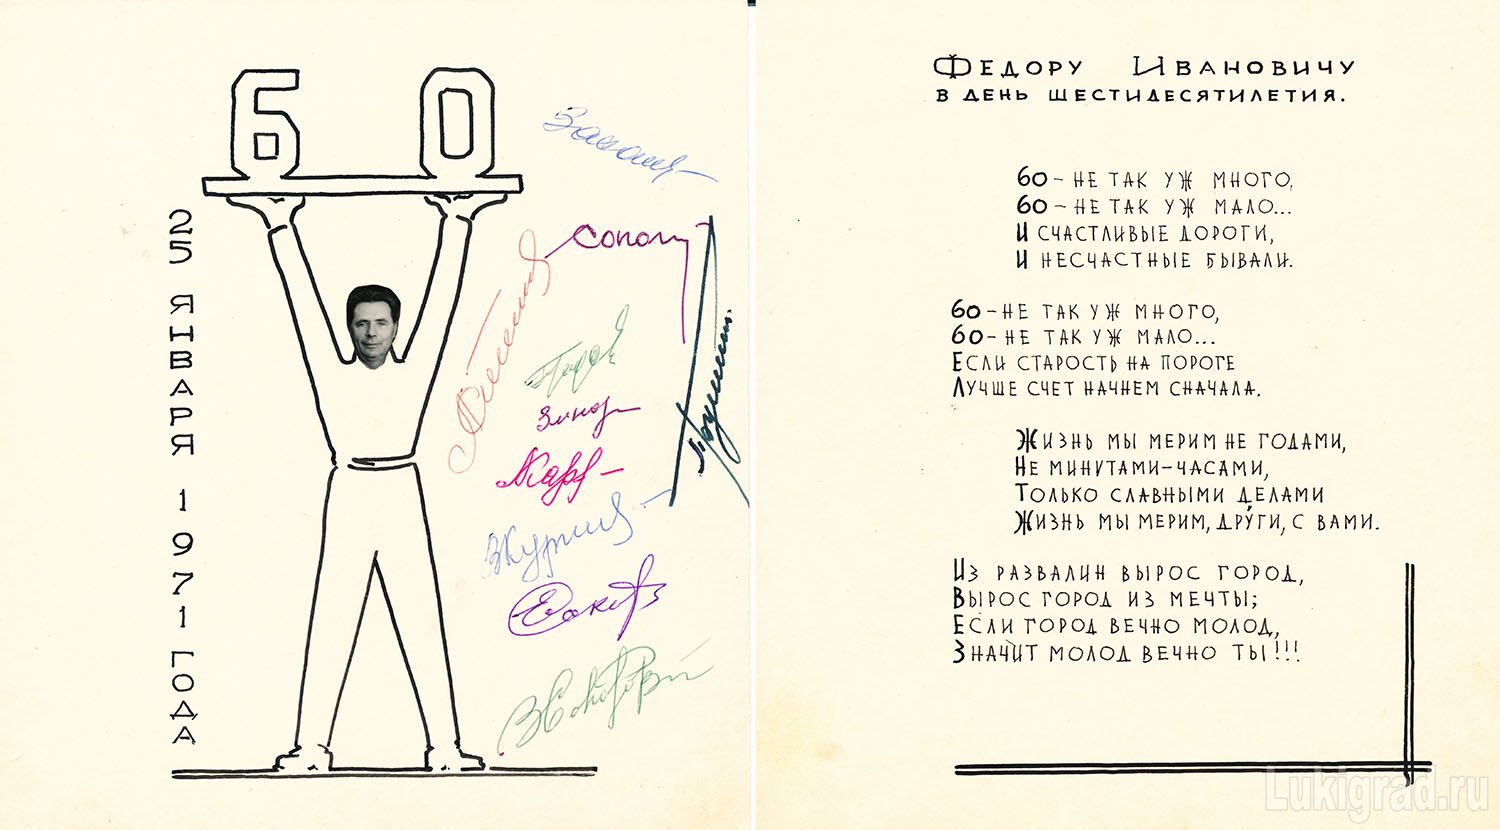 60
25 ЯНВАРЯ 1971 ГОДА
Сокол
ФЕДОРУ ИВАНОВИЧУ
В ДЕНЬ ШЕСТИДЕСЯТИЛЕТИЯ.
60 – НЕ ТАК УЖ МНОГО,
60 – НЕ ТАК УЖ МАЛО...
И СЧАСТЛИВЫЕ ДОРОГИ,
И НЕСЧАСТНЫЕ БЫВАЛИ.
60 – НЕ ТАК УЖ МНОГО,
60 – НЕ ТАК УЖ МАЛО...
ЕСЛИ СТАРОСТЬ НА ПОРОГЕ
ЛУЧШЕ СЧЕТ НАЧНЕМ СНАЧАЛА.
ЖИЗНЬ МЫ МЕРИМ НЕ ГОДАМИ,
НЕ МИНУТАМИ-ЧАСАМИ,
ТОЛЬКО СЛАВНЫМИ ДЕЛАМИ
ЖИЗНЬ МЫ МЕРИМ, ДРУ́ГИ, С ВАМИ.
ИЗ РАЗВАЛИН ВЫРОС ГОРОД,
ВЫРОС ГОРОД ИЗ МЕЧТЫ;
ЕСЛИ ГОРОД ВЕЧНО МОЛОД,
ЗНАЧИТ МОЛОД ВЕЧНО ТЫ!!!
Lukigrad.ru